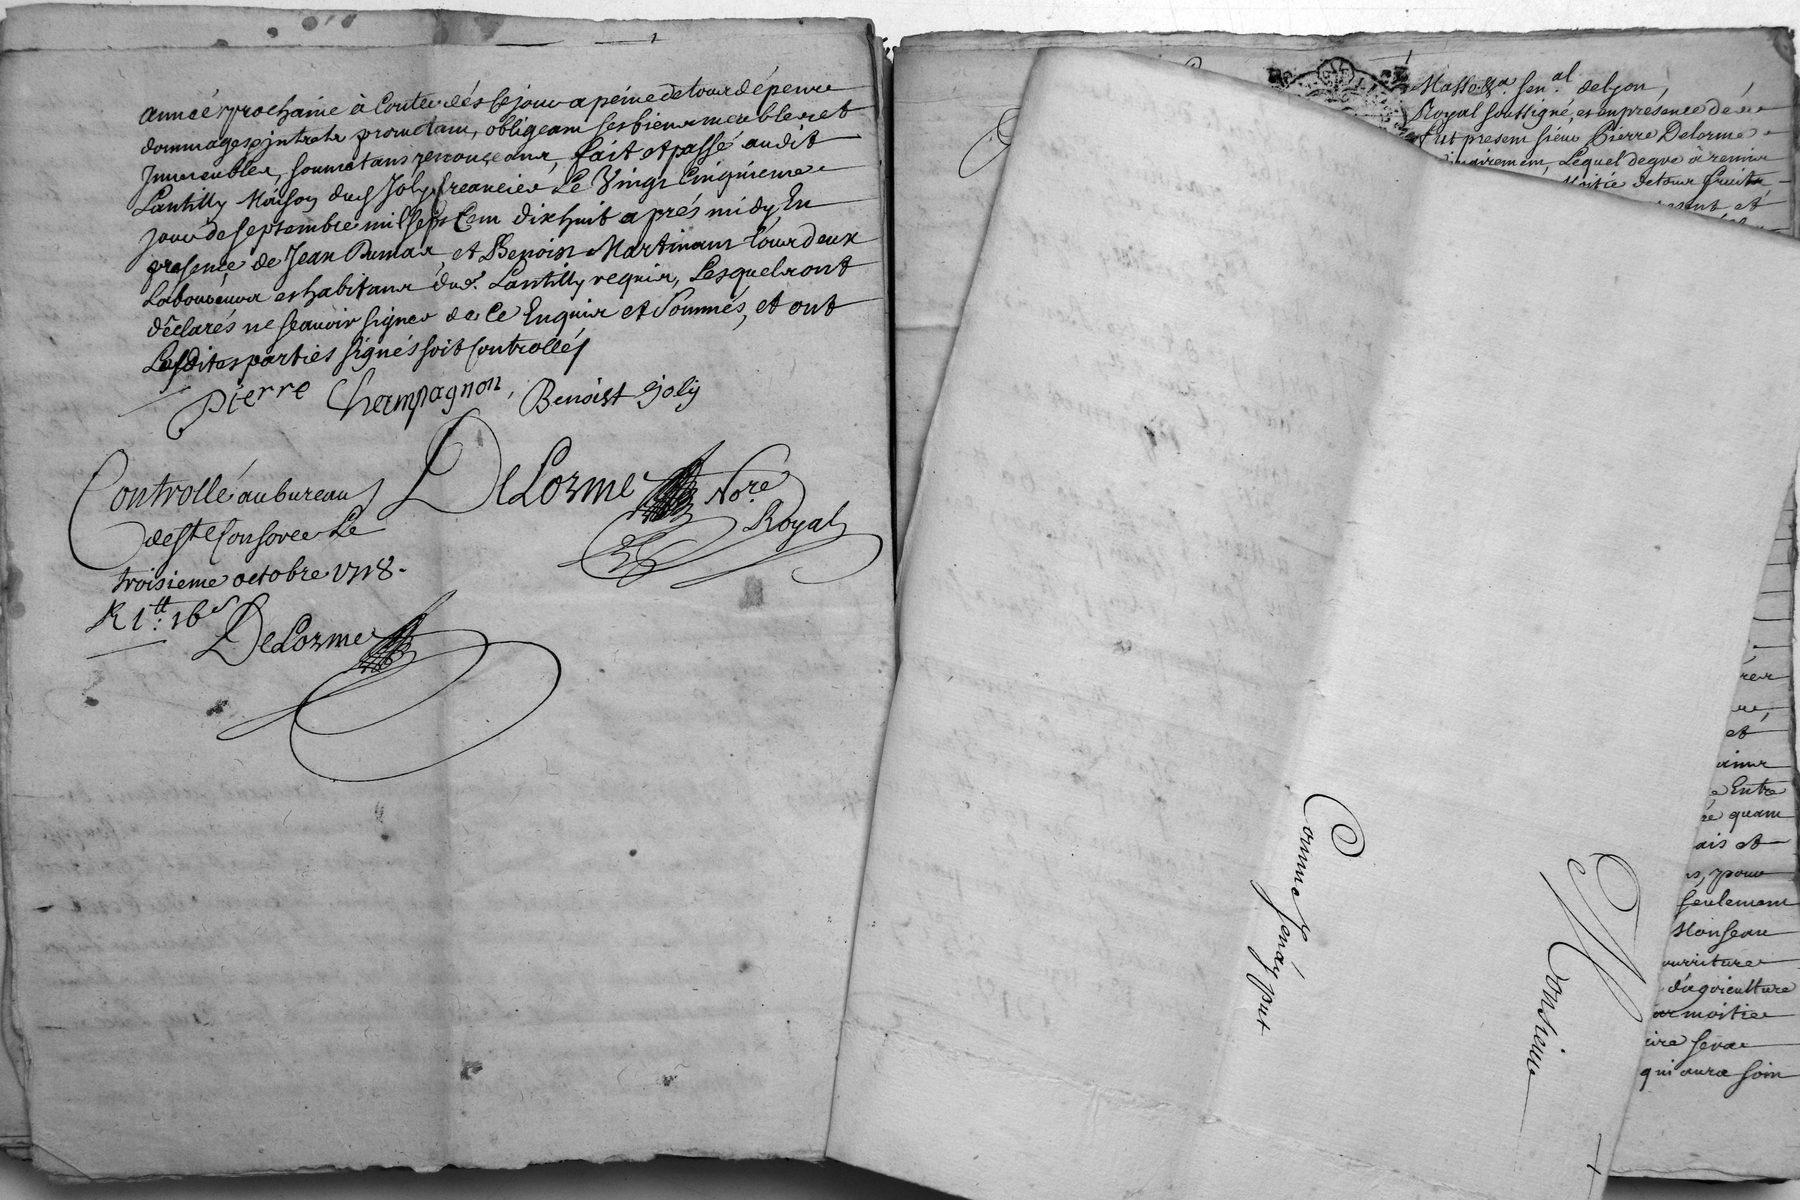 année prochaine à Conter dés Ce jour a peine de tous dépens
dommages intrets promettans, obligeans ses biens meubles et
Immeubles, soumetans renonçeans, fait et passé audit
Lantilly Maison dud Joly Creancier Le Vingt Cinquieme
jour de septembre mil sept Cent dix huit aprés midy En
presence de Jean Dumas, et Benoist Martinant tous deux
Laboureurs et habitans dud. Lantilly requis, Lesquels ont
déclarés ne scavoir signer de Ce Enquis et Sommés, et ont
Lesdites parties signés soit Controllés
Pierre Champagnon, Benoist Joly
DeLorme No.re
Royal
Controllé au bureau
de St e Consorce Le
troisieme octobre 1718.
R 1tt: 16s
DeLorme
sen.al de Lyon,
Royal soussigné, et en presence de
fut present sieur Pierre Delorme
Lequel de gré à remis
Moitié de tous fruits
et
et
Entre
quam
ais et
pour
seulement
d'agriculture
moitié
sera
qui aura soin
Comme fondé pour
Monsieur